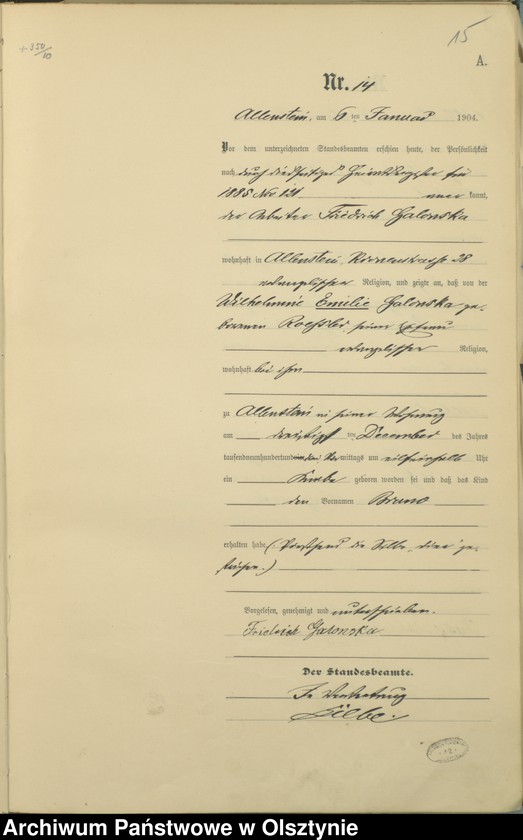 15
+350/10
A.
Nr. 14
Allenstein, am 6 ten Januar 1904.
Vor dem unterzeichneten Standesbeamten erschien heute, der Persönlichkeit
nach durch diesseitiges Heiratsregister für
1885 No 121 aner kannt,
der Arbeiter Friedrich Galonska
wohnhaft in Allenstein, 28
evangelischer Religion, und zeigte an, daß von der
Wilhelmine Emilie Galonska ge-
borenen Roessler, seiner Ehefrau
evangelischer Religion,
wohnhaft bei ihm
zu Allenstein in seiner Wohnung
am dreißigst ten December des Jahres
tausendneunhundertunddrei Vormittags um Uhr
ein Knabe geboren worden sei und daß das Kind
den Vornamen Bruno
erhalten habe. (Vorstehend die Silbe ge-
strichen.)
Vorgelesen, genehmigt und unterschrieben.
Friedrich Galonska
Der Standesbeamte.
In Vertretung
Archiwum Państwowe w Olsztynie